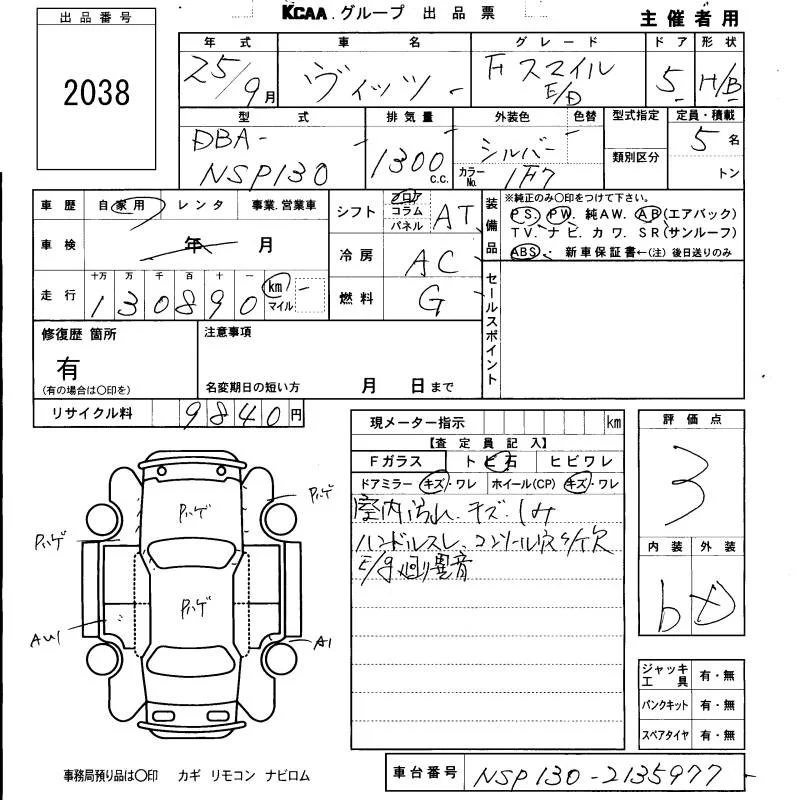 KCAA.グループ 出品票
主催者用
出品番号
2038
年式 車名 グレード ドア 形状
25/9月 ヴィッツ F スマイル E/D 5 H/B
型式 排気量 外装色 色替 型式指定 定員・積載
DBA-NSP130 1300c.c. シルバー カラーNo. 1F7 類別区分 5名
トン
車歴 自家用 レンタ 事業.営業車
車検 年 月
走行 十万 万 千 百 十 一
130890 km マイル
シフト フロア コラム パネル AT
冷房 AC
燃料 G
装備品
※純正のみ〇印をつけて下さい。
PS. PW. 純AW. AB(エアバック)
TV. ナビ. カワ. SR(サンルーフ)
ABS. 新車保証書←(注) 後日送りのみ
セールスポイント
修復歴 箇所
有
(有の場合は〇印を)
注意事項
名変期日の短い方 月 日まで
リサイクル料 9840円
現メーター指示 km
【査定員記入】
Fガラス ト ビ 石 ヒビワレ
ドアミラー キズ・ワレ ホイール(CP) キズ・ワレ
室内汚れ.キズ.しみ
ハンドルスレ.コンソール穴々欠
E/g廻り異音
評価点
3
内装 外装
b
ジャッキ工具 有・無
パンクキット 有・無
スペアタイヤ 有・無
車台番号 NSP130-2135977
Pハゲ
Pハゲ
Pハゲ
Pハゲ
AU1
A1
事務局預り品は〇印 カギ リモコン ナビロム